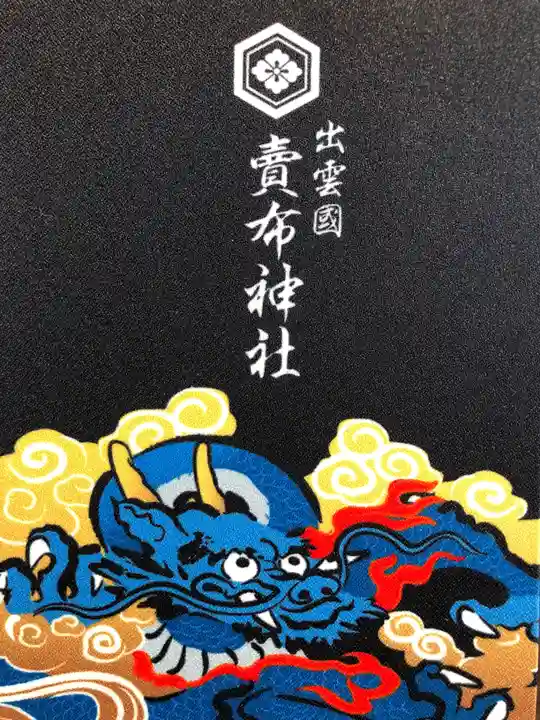 出雲國
賣布神社